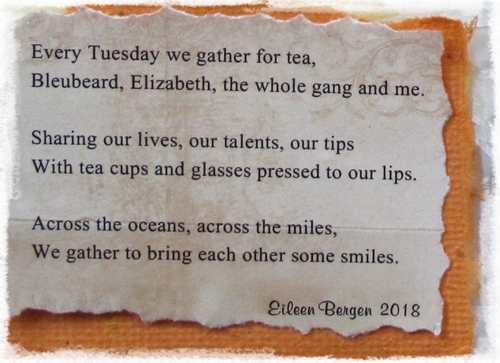 Every Tuesday we gather for tea,
Bleubeard, Elizabeth, the whole gang and me.
Sharing our lives, our talents, our tips
With tea cups and glasses pressed to our lips.
Across the oceans, across the miles,
We gather to bring each other some smiles.
Eileen Bergen 2018